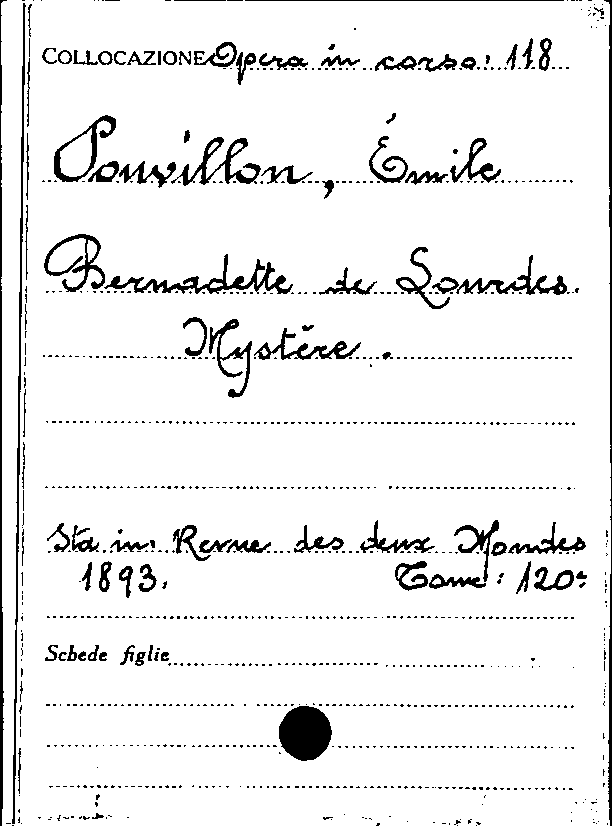 COLLOCAZIONE Opera in corso: 118
Pouvillon, Émile
Bernadette de Lourdes.
Mystère.
Sta in: Revue des deux Mondes
1893. Tome: 120º
Schede figlie